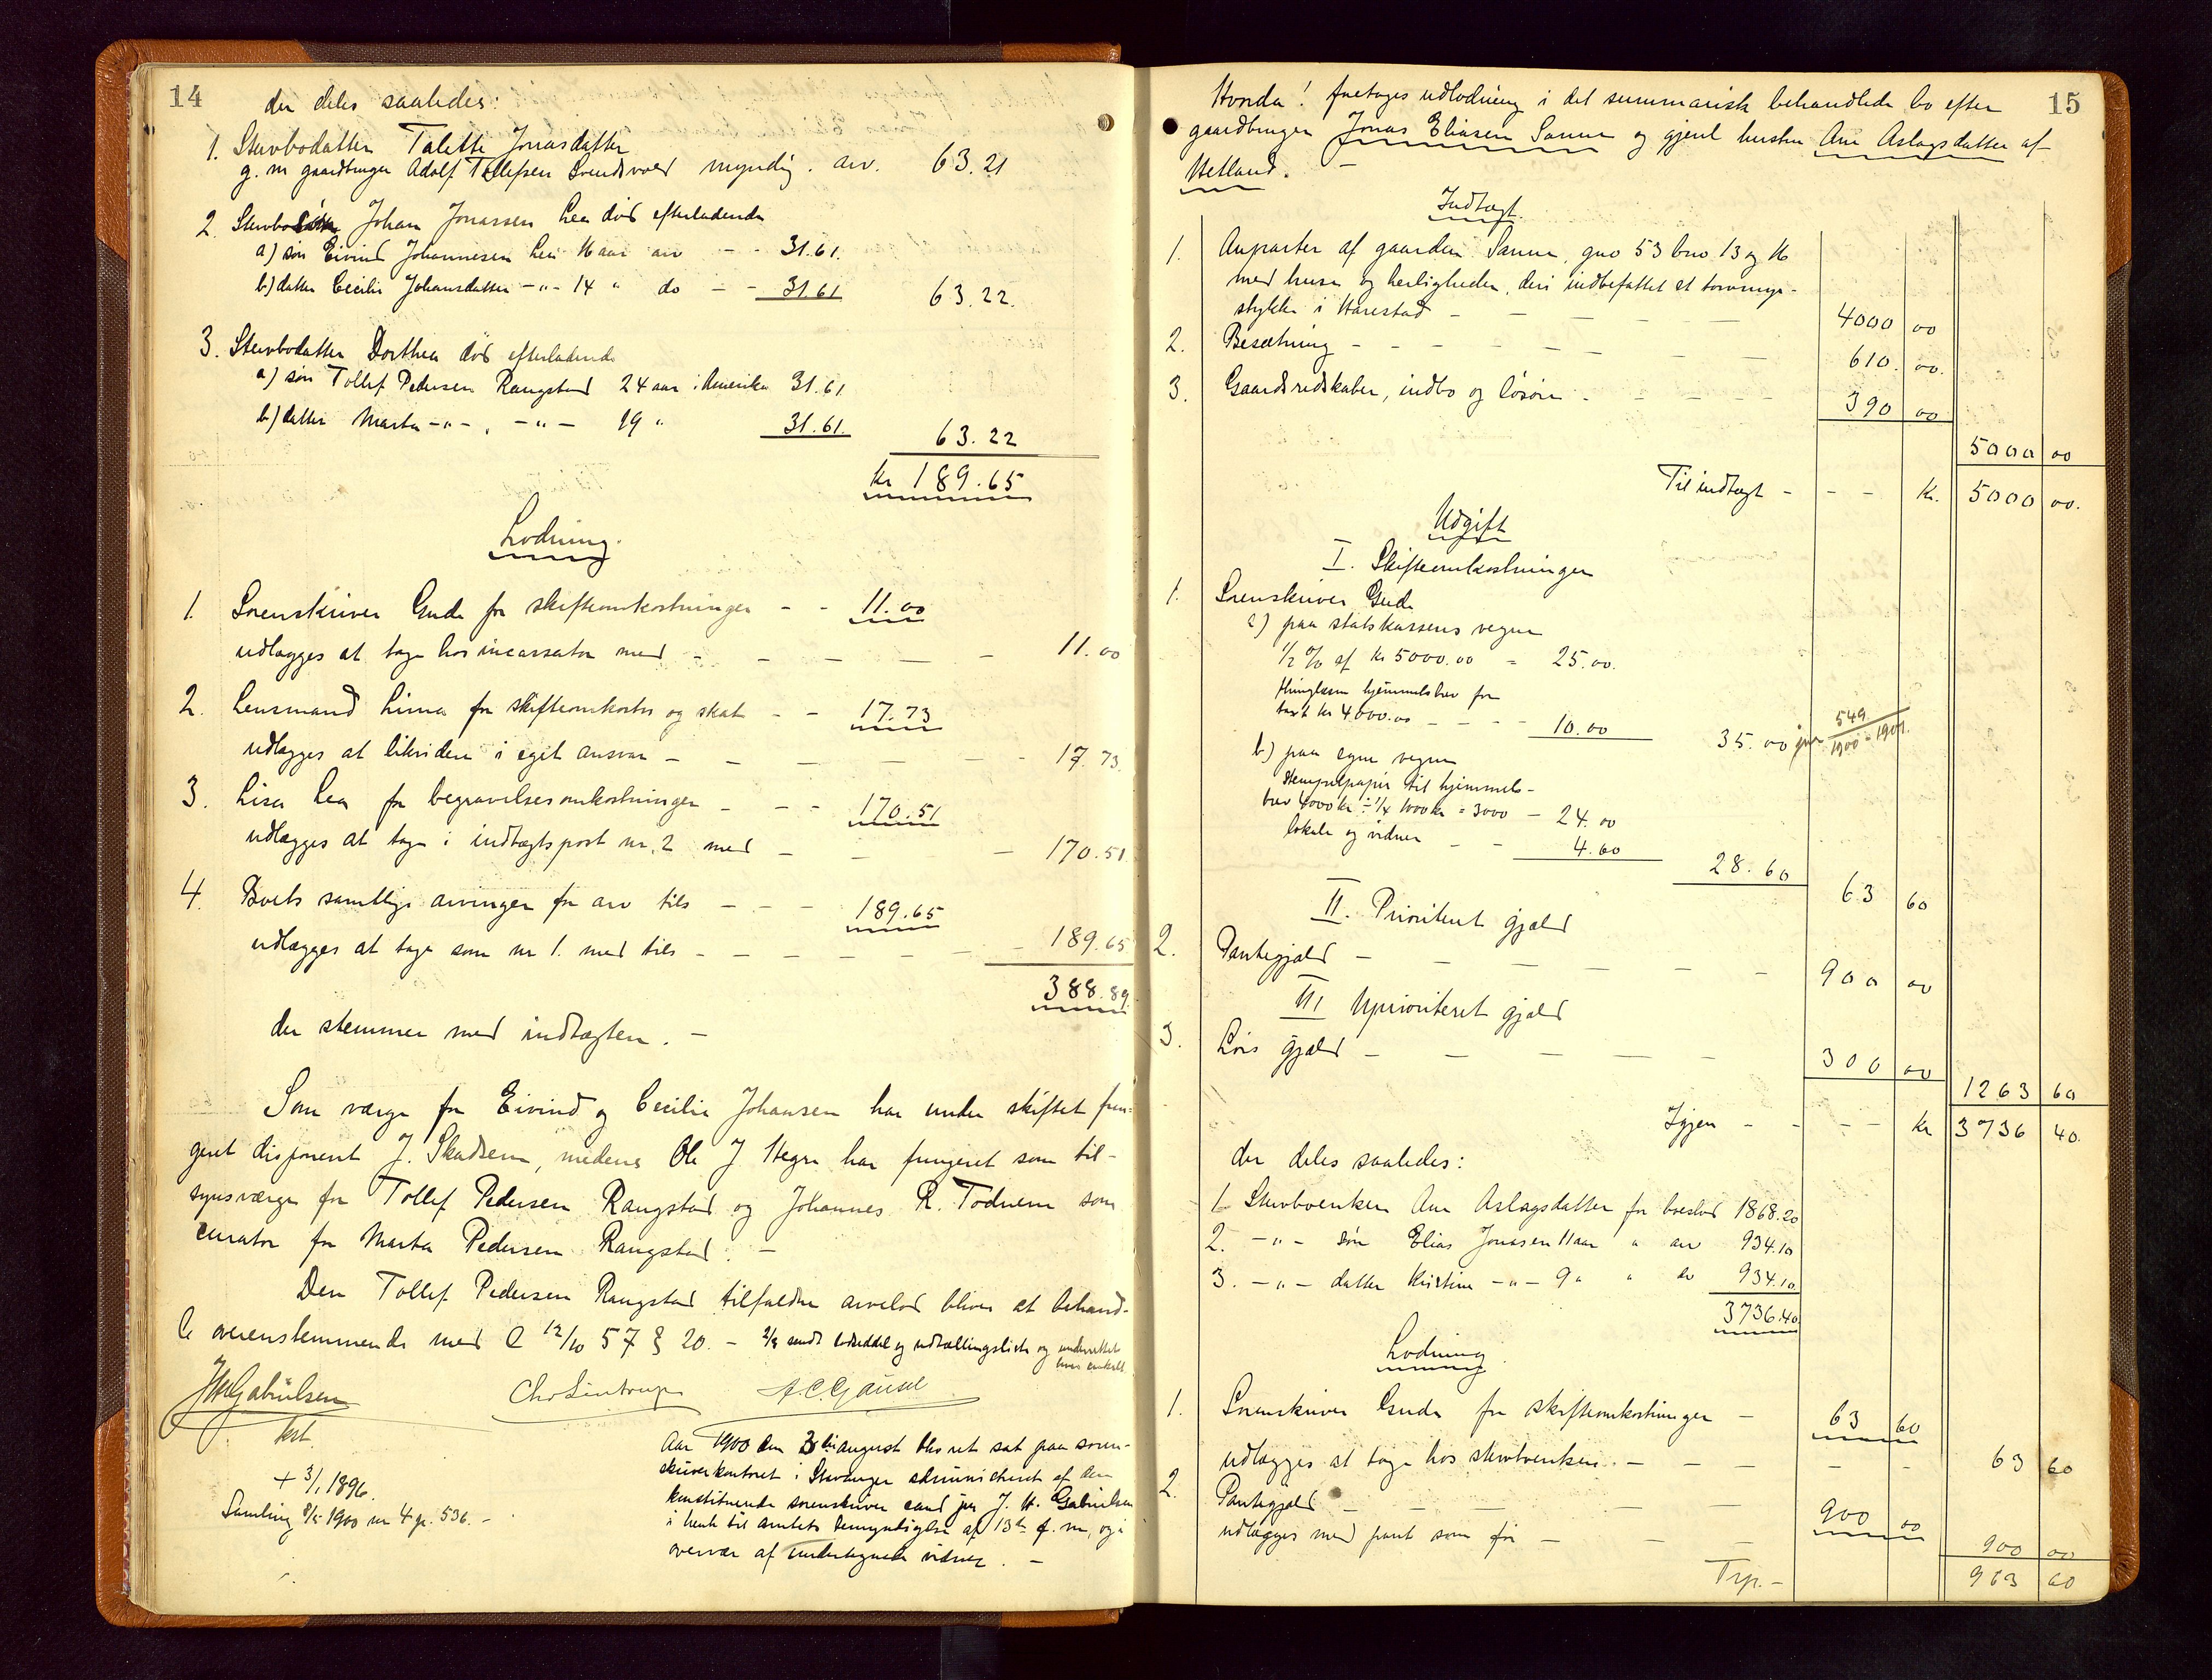 14
der deles saaledes:
1. Stervbodatter Talette Jonasdatter
g. m gaardbruger Adolf Tollefsen Svendsvold myndig. arv. 63.21
2. Stervbosøn Johan Jonassen Lea død efterladende
a) søn Eivind Johannesen Lea 16 aar arv - - 31.61.
b) datter Cecilie Johansdatter -"- 14 " do - - 31.61 63.22.
3. Stervbodatter Dorthea død efterladende
a) søn Tollef Pedersen Rangstad 24 aar i Amerika 31.61
b) datter Marta -"- , -"- 19 " 31.61. 63.22
kr 189.65
Lodning.
1. Sorenskriver Gude for skifteomkostninger - - 11.00
udlægges at tage hos incassator med - - - - - 11.00
2. Lensmand Lima for skifteomkostn og skat - - 17.73
udlægges at likvidere i eget ansvar - - - - - - 17.73.
3. Lisa Lea for begravelsesomkostninger - - - 170.51
udlægges at tage i indtægtspost nr. 2 med - - - 170.51
4. Boets samtlige arvinger for arv tils - - - 189.65
udlægges at tage som nr 1. med tils - - - - - - 189.65
388.89.
der stemmer med indtægten. -
Som værge for Eivind og Cecilie Johansen har under skiftet fun-
geret disponent J. Skadsem, medens Ole J Hegre har fungeret som til-
synsværge for Tollef Pedersen Rangstad og Johannes R. Todnem som
curator for Marta Pedersen Rangstad. -
Den Tollef Pedersen Rangstad tilfaldne arvelod bliver at behand-
le overensstemmende med L 12/10 57 § 20. - 2/8 sendt lodseddel og udtællingsliste og underrettet
hver enkelt
JHGabrielsen Chr Lintrup A. C. Gausel
kst.
+ 3/1 1896.
Samling 8/5 1900 nr 4 p. 536. -
Aar 1900 den 3die august blev ret sat paa soren-
skriverkontoret i Stavanger administreret af den
konstituerede sorenskriver cand jur J. H. Gabrielsen
i henh til amtets bemyndigelse af 13de f. m, og i
overvær af undertegnede vidner. -
15
Hvorda! foretoges udlodning i det summarisk behandlede bo efter
gaardbruger Jonas Eliasen Sunne og gjenl hustru Ane Aslagsdatter af
Hetland. -
Indtægt.
1. Anparter af gaarden Sunne, gno 53 bno 13 og 16
med huse og herligheder, deri indbefattet et torvmyr-
stykke i Harestad - - - - - - 4000 00
2. Besætning - - - - - - - - 610. 00.
3. Gaardsredskaber, indbo og løsøre - - - - - 390 00
5000 00
Til indtægt - - - kr. 5000 00.
Udgift
I. Skifteomkostninger
1. Sorenskriver Gude
a) paa statskassens vegne
1/2 % af kr 5000.00 = 25.00.
thinglæsn hjemmelsbrev for
taxt kr 4000.00 - - - - 10.00 35.00 jnr 549/1900-1901.
b) paa egne vegne
stempelpapir til hjemmels-
brev 4000 kr ÷ 1/4 1000 kr = 3000 - 24.00
lokale og vidner - - 4.60 28.60 63 60
II. Prioritert gjæld
2. Pantegjæld - - - - - - - 900 00
III Uprioriteret gjæld
3. Løs gjæld - - - - - 300 00
1263 60
Igjen - - - - kr 3736 40.
der deles saaledes:
1. Stervboenken Ane Aslagsdatter for boeslod 1868.20
2. -"- søn Elias Jonasen 11 aar " arv 934.10
3. -"- datter Kristine -"- 9 " " do 934.10
3736.40
Lodning.
1. Sorenskriver Gude for skifteomkostninger - 63 60
udlægges at tage hos stervboenken. - - - - - 63 60
2. Pantegjæld - - - - - - 900 00
udlægges med pant som før - - - 900 00
Trp. - 963 60